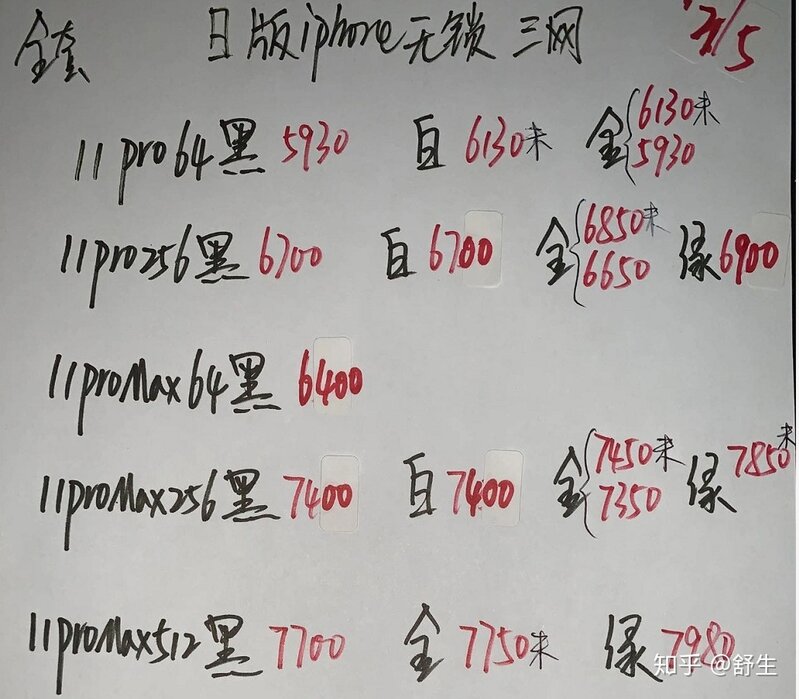 全套 日版iphone无锁 三网
11pro64黑5930 白6130未 金{6130未
5930
11pro256黑6700 白6700 金{6850未 绿6900
6650
11proMax64黑6400
11proMax256黑7400 白7400 金{7450未 绿7850未
7350
11proMax512黑7700 金7750未 绿7980
知乎 @舒生